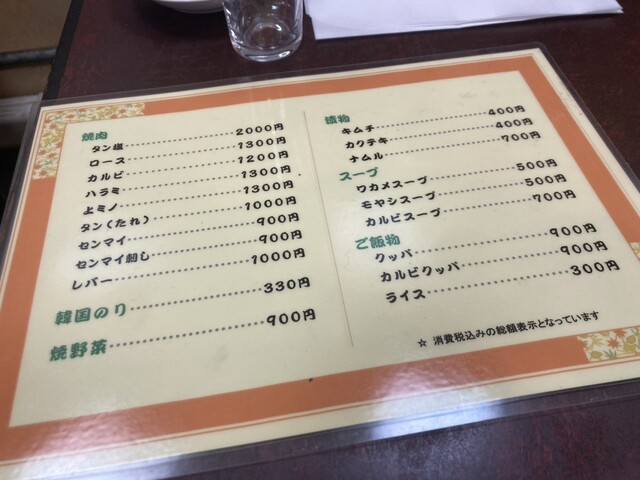 焼肉
タン塩 2000円
ロース 1300円
カルビ 1200円
ハラミ 1300円
上ミノ 1300円
タン(たれ) 1000円
センマイ 900円
センマイ刺し 900円
レバー 1000円
韓国のり 330円
焼野菜 900円
漬物
キムチ 400円
カクテキ 400円
ナムル 700円
スープ
ワカメスープ 500円
モヤシスープ 500円
カルビスープ 700円
ご飯物
クッパ 900円
カルビクッパ 900円
ライス 300円
☆ 消費税込みの総額表示となっています